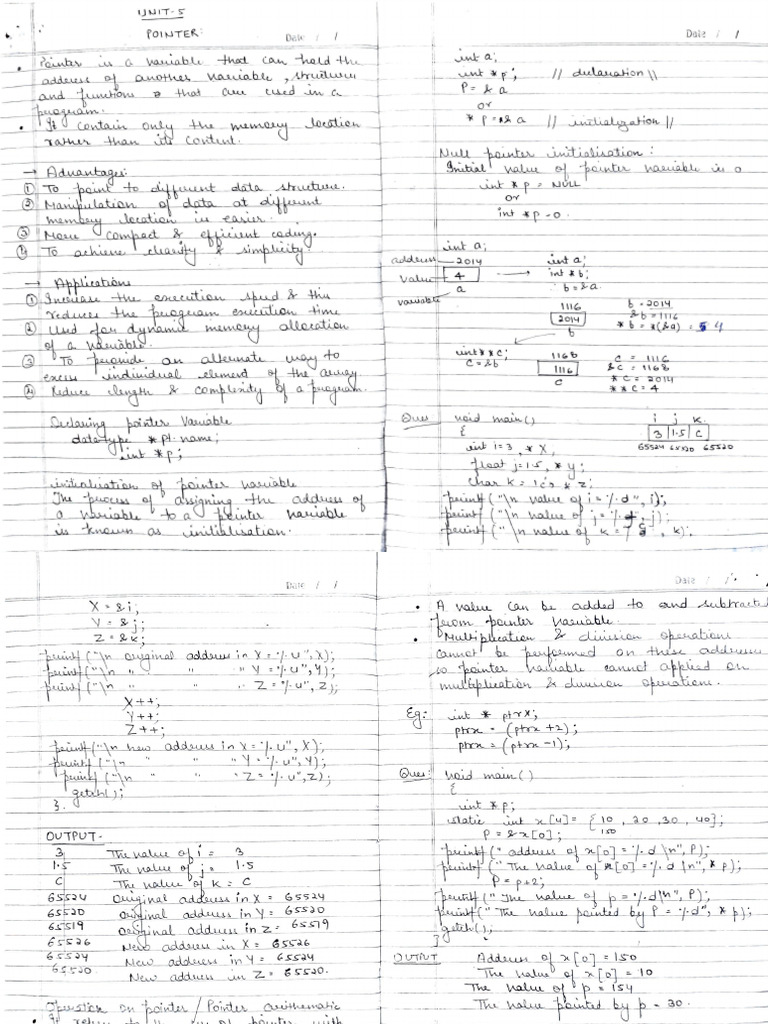 UNIT-5
POINTER:
Date / /
Pointer is a variable that can hold the
address of another variable, structures
and functions that are used in a
program.
It contain only the memory location
rather than its content.
→ Advantages:
① To point to different data structure.
② Manipulation of data at different
memory location is easier.
③ More compact & efficient coding.
④ To achieve clearity & simplicity.
→ Applications
① Increase the execution speed & this
reduces the program execution time
② Used for dynamic memory allocation
of a variable.
③ To provide an alternate way to
excess individual element of the array
④ Reduce length & complexity of a program.
Declaring pointer Variable
data type * pt name;
int *p;
initialisation of pointer variable
The process of assigning the address of
a variable to a pointer variable
is known as initialisation.
Date / /
int a;
int *p; // declaration //
P = & a
or
* p = & a // initialization //
Null pointer initialisation:
Initial value of pointer variable is o
int * p = NULL
or
int *p = 0.
int a;
address 2014
value 4
variable a
→ int a;
int * b;
b = & a.
1116
2014
b
b = 2014
&b = 1116
* b = *(&a) = 4
int **c;
c = &b
1168
1116
c
c = 1116
&c = 1168
*c = 2014
**c = 4
Ques void main()
{
int i=3, * X,
float j=1.5, * y;
char k = 'c', * z;
i j k
3 1.5 C
65524 65520 65520
printf ("\n value of i = %d", i);
printf ("\n value of j = %f, j);
printf ("\n value of k = %c, k);
Date / /
X = & i;
Y = & j;
Z = & k;
printf ("\n original address in X = %u", X);
printf ("\n " " " Y = %u", Y);
printf ("\n " " " Z = %u", Z);
X++;
Y++;
Z++;
printf ("\n new address in X = %u", X);
printf ("\n " " " Y = %u", Y);
printf ("\n " " " Z = %u", Z);
getch();
}.
OUTPUT-
3 The value of i = 3
1.5 The value of j = 1.5
C The value of k = C
65524 Original address in X = 65524
65520 Original address in Y = 65520
65519 original address in Z = 65519
65526 New address in X = 65526
65524 New address in Y = 65524
65520 New address in Z = 65520.
Operation on pointer / Pointer arithematic
Date / /
A value can be added to and subtracted
from pointer variable.
Multiplication & division operations
cannot be performed on these addresses
so pointer variable cannot applied on
multiplication & division operations.
Eg: int * ptrx;
ptrx = (ptrx + 2);
ptrx = (ptrx - 1);
Ques: void main()
{
int * p;
static int x[4] = {10, 20, 30, 40};
P = & x[0]; 150
printf (" address of x[0] = %d \n", P);
printf (" The value of x[0] = %d \n", * p);
P = p+2;
printf (" The value of p = %d\n", P);
printf (" The value pointed by P = %d", * p);
getch();
}
OUTPUT Address of x[0] = 150
The value of x[0] = 10
The value of p = 154
The value pointed by p = 30.